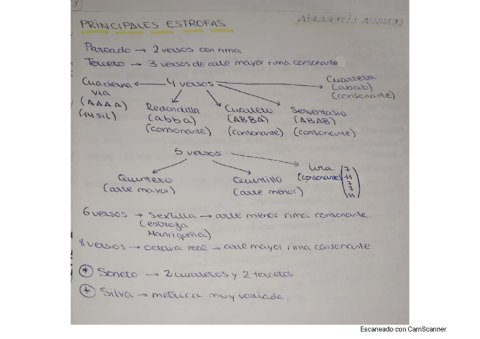 PRINCIPALES ESTROFAS
Pareado → 2 versos con rima
Terceto → 3 versos de arte mayor rima consonante
Cuaderna vía (AAAA) (14 síl)
4 versos
Cuarteta (abab) (consonante)
Redondilla (abba) (consonante)
Cuarteto (ABBA) (consonante)
Serventesio (ABAB) (consonante)
5 versos
Quinteto (arte mayor)
Quintilla (arte menor)
Lira (consonante)
6 versos → Sextilla → arte menor rima consonante.
(estrofa Manriqueña)
8 versos → octava real → arte mayor rima consonante
* Soneto → 2 cuartetos y 2 tercetos
* Silva → métrica muy variada.
Escaneado con CamScanner